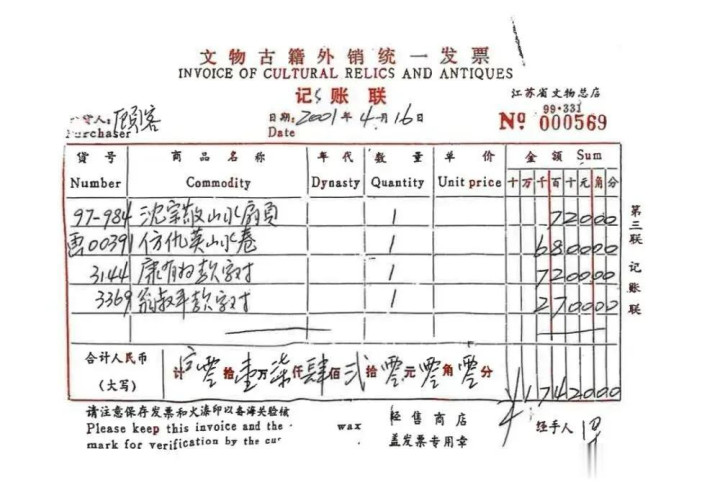 文物古籍外销统一发票
INVOICE OF CULTURAL RELICS AND ANTIQUES
记账联
江苏省文物总店
99·331
货人:顾客
Purchaser
日期:2001年4月16日
Date
№ 000569
货号 商品名称 年代 数量 单价 金额 Sum
Number Commodity Dynasty Quantity Unit price 十万千百十元角分
97-984 沈宗敬山水扇页 1 72000
画00391 仿仇英山水卷 1 680000
3144 康有为款字对 1 720000
3369 翁叔平款字对 1 270000
合计人民币
(大写)
计 零拾壹万柒仟肆佰贰拾零元零角零分 1742000
第三联 记账联
请注意保存发票和火漆印以备海关验核
Please keep this invoice and the wax
mark for verification by the cur
经售商店
盖发票专用章
经手人